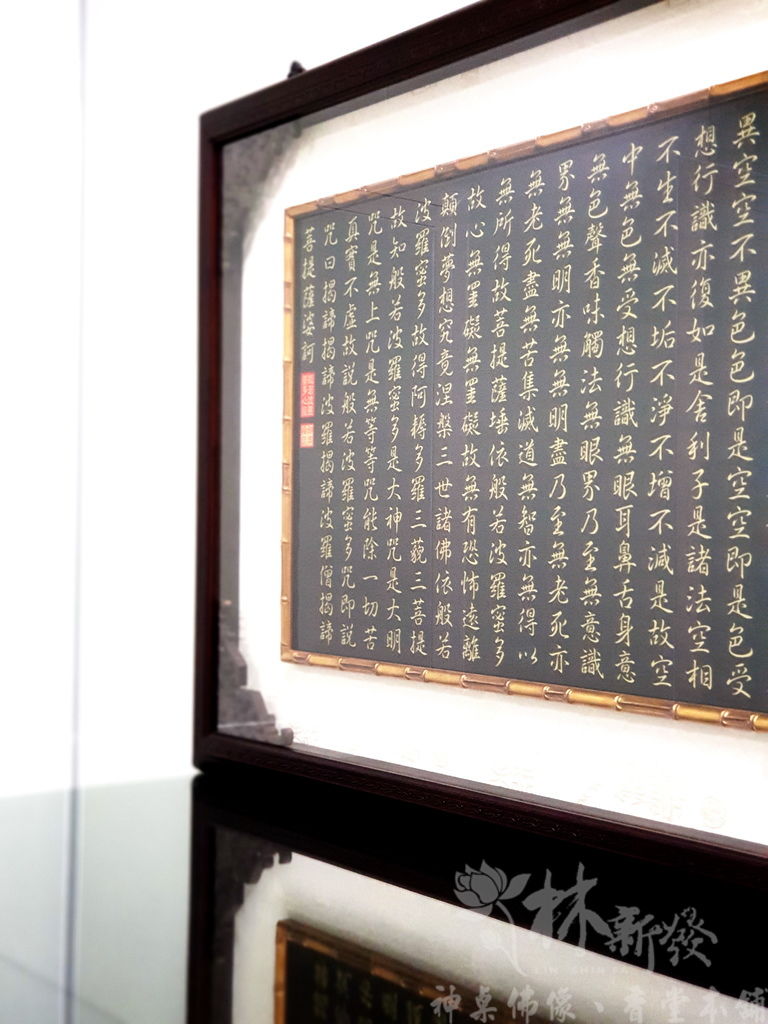 異空空不異色色即是空空即是色受
想行識亦復如是舍利子是諸法空相
不生不滅不垢不淨不增不減是故空
中無色無受想行識無眼耳鼻舌身意
無色聲香味觸法無眼界乃至無意識
界無無明亦無無明盡乃至無老死亦
無老死盡無苦集滅道無智亦無得以
無所得故菩提薩埵依般若波羅蜜多
故心無罣礙無罣礙故無有恐怖遠離
顛倒夢想究竟涅槃三世諸佛依般若
波羅蜜多故得阿耨多羅三藐三菩提
故知般若波羅蜜多是大神咒是大明
咒是無上咒是無等等咒能除一切苦
真實不虛故說般若波羅蜜多咒即說
咒曰揭諦揭諦波羅揭諦波羅僧揭諦
菩提薩婆訶
林新發
LIN SHIN FA
神桌佛像、香堂本舖